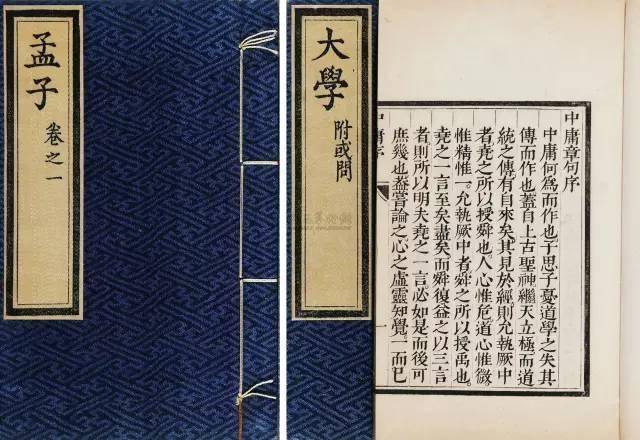 孟子
卷之一
大學
附或問
中庸章句序
中庸何爲而作也子思子憂道學之失其
傳而作也蓋自上古聖神繼天立極而道
統之傳有自來矣其見於經則允執厥中
者堯之所以授舜也人心惟危道心惟微
惟精惟一允執厥中者舜之所以授禹也
堯之一言至矣盡矣而舜復益之以三言
者則所以明夫堯之一言必如是而後可
庶幾也蓋嘗論之心之虛靈知覺一而已
中庸序
一